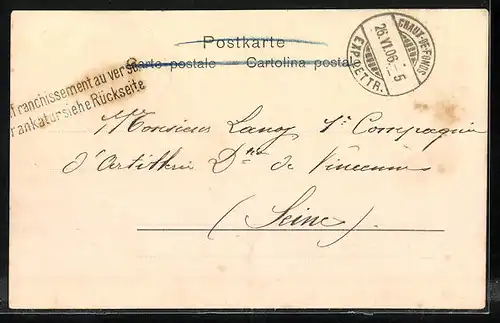 Postkarte
Carte postale Cartolina postale
ffranchissement au verso
rankatur siehe Rückseite
CHAUX-DE-FONDS
26.VI.06.-5
EXP. LETTR.
Monsieur Lanoy 1re Compagnie
d'Artillerie Don de Vincennes
(Seine).